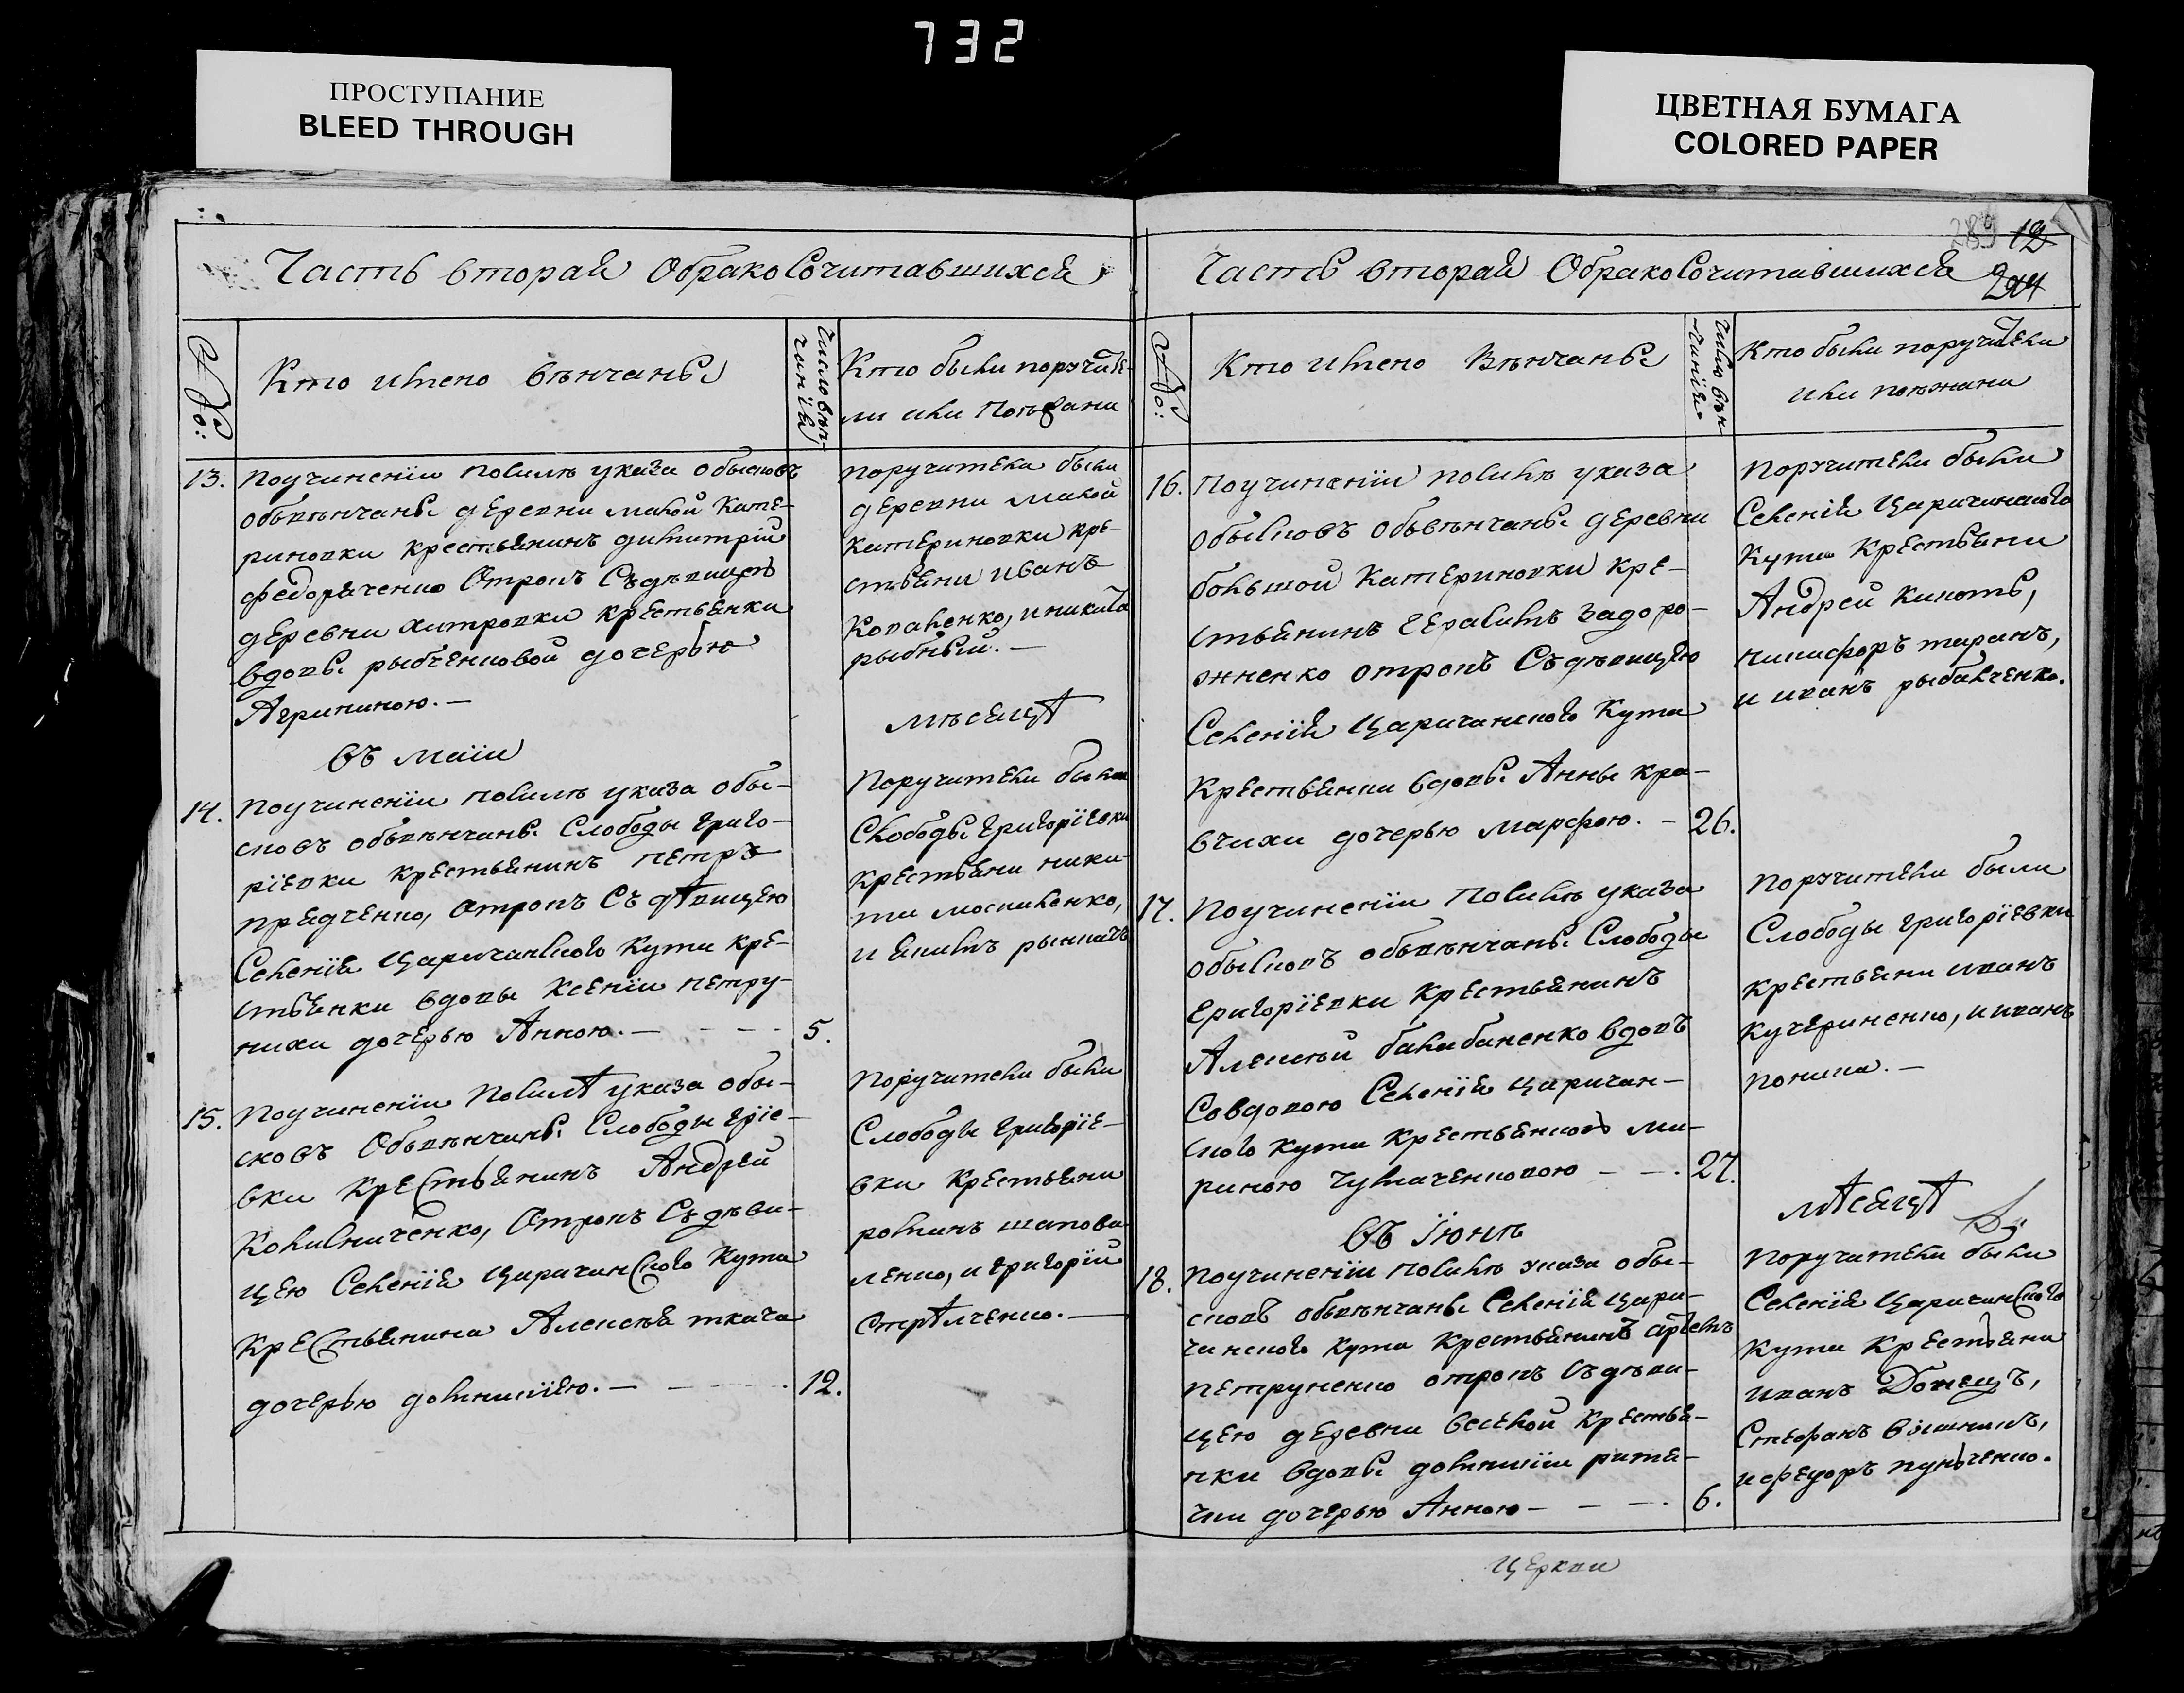 732
ПРОСТУПАНИЕ
BLEED THROUGH
ЦВЕТНАЯ БУМАГА
COLORED PAPER
Часть вторая Обракосочитавшихся
№:
Кто имено вѣнчаны
Число вѣн-
чанїя
Кто были поручите-
ли или поѣзжани
13. поучиненїи посилѣ указа обысковъ
обвѣнчаны деревни малой Кате-
риновки крестьянинъ димитрїй
федоряченко Отрокъ Съдѣвицею
деревни хитровки крестьянки
вдовы рыбченковой дочерью
Агрипиною. —
поручители были
деревни малой
катериновки кре-
стьяни иванъ
Коваленко, иникита
рыбный. —
въ маїи
мѣсяцѣ
14. поучиненїи посилѣ указа обы-
сковъ обвѣнчаны Слободы григо-
рїевки крестьянинъ петръ
предченко, отрокъ Съ дѣвицею
Селенїя Царичанского Кута кре-
стьянки вдовы Ксенїи петру-
нихи дочерью Анною. — - - - 5.
Поручители были
Слободы григорїевки
крестьяни ники-
та москаленко,
и якимъ рымарь
15. Поучиненїи Посилѣ указа обы-
сковъ Обвѣнчаны Слободы грїе-
вки крестьянинъ Андрей
Колисниченко, Отрокъ Съ дѣви-
цею Селенїя Царичанского Кута
Крестьянина Алексѣя ткача
дочерью домникїею. — - - - 12.
поручители были
Слободы григорїе-
вки Крестьяни
романъ шапова-
ленко, и григорїй
стрѣлченко. —
289 12
204
Часть вторая Обракосочитавшихся
№:
Кто имено Вѣнчаны
Число вѣн-
чанїя
Кто были поручители
или поѣзжани
16. Поучиненїи посилѣ указа
обысковъ обвѣнчаны деревни
большой Катериновки кре-
стьянинъ герасимъ задоро-
жненко отрокъ Съдѣвицею
Селенїя Царичанского Кута
Крестьянки вдовы Анны кра-
вчихи дочерью марфою. - 26.
поручители были
Селенїя Царичанского
Кута Крестьяни
Андрей Кикоть,
никифоръ таранъ,
и иванъ рыбалченко.
17. Поучиненїи Посилѣ указа
обысковъ обвѣнчаны Слободы
григорїевки Крестьянинъ
Алексѣй балабаненко вдовъ
Совдовою Селенїя Царичан-
ского Кута Крестьянкою ма-
риною Чумаченковою - - - 27.
поручители были
Слободы григорїевки
Крестьяни иванъ
Кучериненко, и иванъ
попика. —
въ Їюнѣ
мѣсяцѣ
18. поучиненїи посилѣ указа обы-
сковъ обвѣнчаны Селенїя Цари-
чанского Кута Крестьянинъ артемъ
петруненко отрокъ Съ дѣви-
цею деревни веселой Крестья-
нки вдовы домникїи ритя-
чки дочерью Анною - - - 6.
поручители были
Селенїя Царичанского
Кута Крестьяни
иванъ Донецъ,
Стефанъ
и федоръ
Церкви